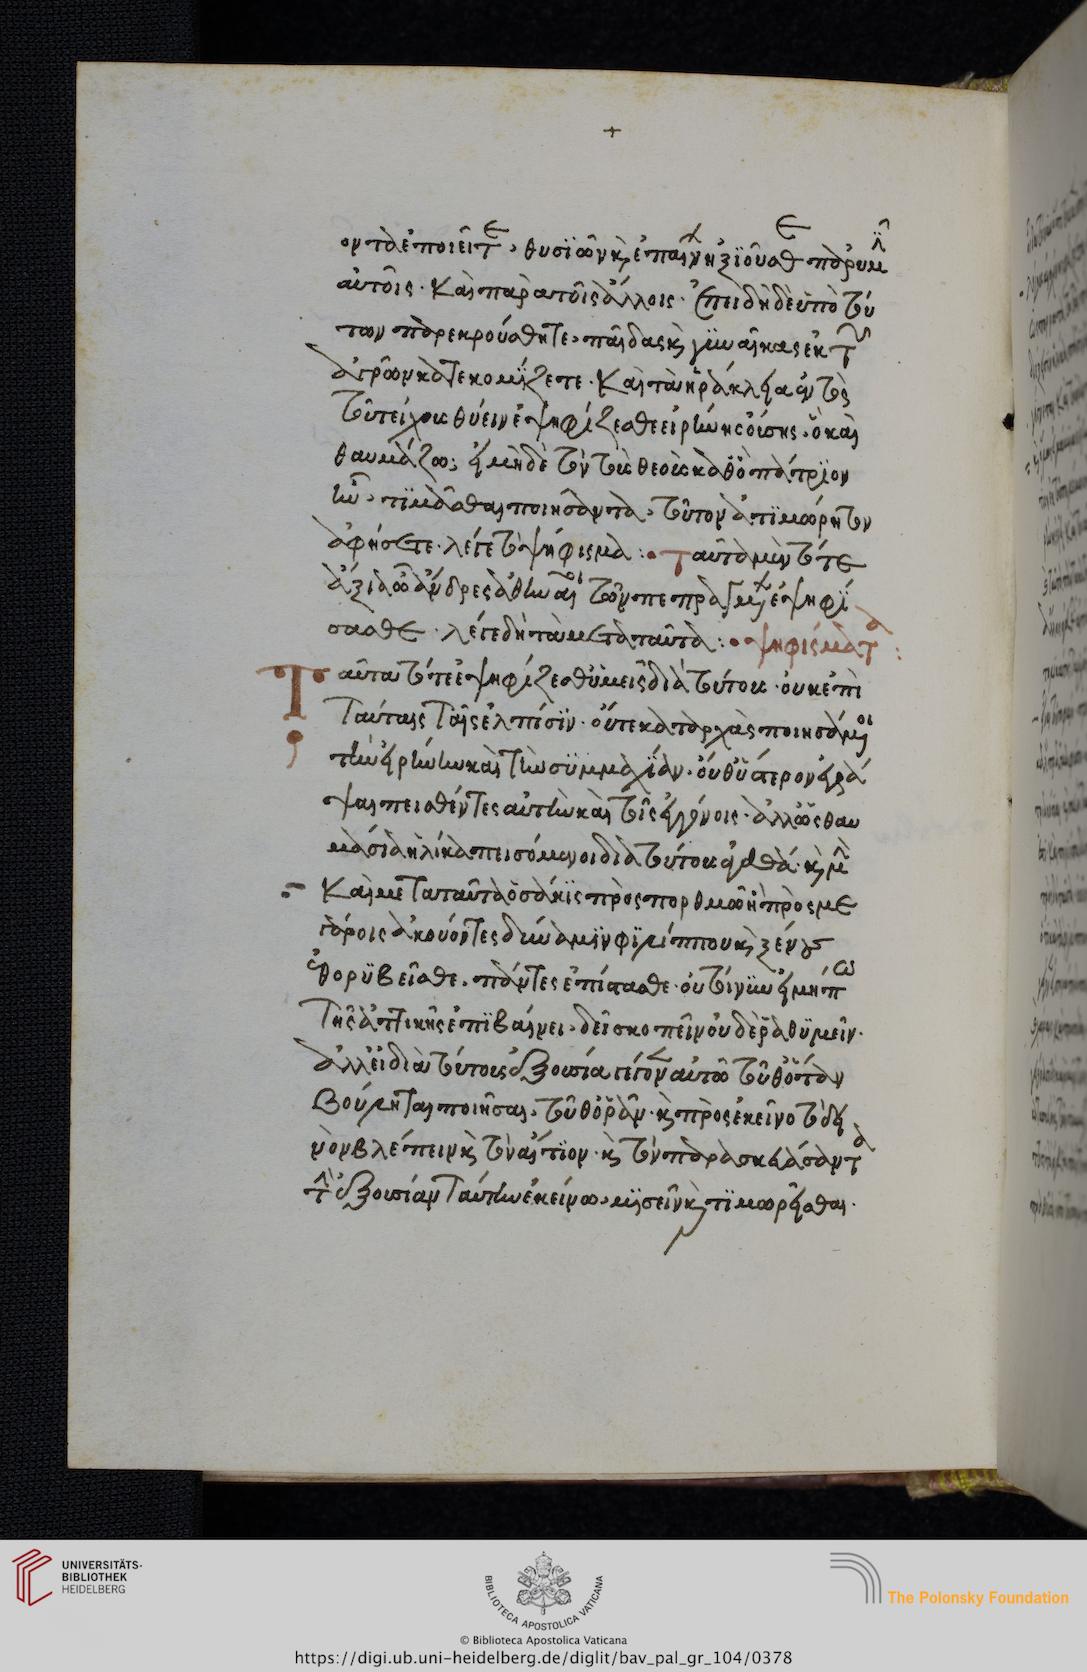 +
οντα ἐποιεῖτε, θυσιῶν καὶ ἐπαίνων ἠξιοῦσθε παρ' ὑμῖν
αὐτοῖς. καὶ παρὰ τοῖς ἄλλοις. ἐπειδὴ δὲ ὑπὸ τού
των παρεκρούσθητε, παῖδας καὶ γυναῖκας ἐκ τῶν
ἀγρῶν κατεκομίζετε. καὶ τὰ ἡράκλεια ἐντὸς
τοῦ τείχους θύειν ἐψηφίζεσθε εἰρήνης οὔσης. ὃ καὶ
θαυμάζω; εἰ μηδὲ τὸν τοὺς θεοὺς καθ' ὃ πάτριον
ἦν, τιμᾶσθαι ποιήσαντα, τοῦτον ἀτιμώρητον
ἀφήσετε. λέγε τὸ ψήφισμα :• ταῦτα μὲν τότε
ἄξια ὦ ἄνδρες ἀθηναῖοι τῶν πεπραγμένων ἐψηφί
σασθε. λέγε δὴ τὰ μετὰ ταῦτα :• ψηφίσματα :
Ταῦτα τότε ἐψηφίζεσθ' ὑμεῖς διὰ τούτους. οὐκ ἐπὶ
ταύταις ταῖς ἐλπίσιν. οὔτε κατ' ἀρχὰς ποιησάμενοι
τὴν εἰρήνην καὶ τὴν συμμαχίαν. οὔθ' ὕστερον ἐγγρά
ψαι πεισθέντες αὐτὴν καὶ τοῖς ἐγγόνοις. ἀλλ' ὡς θαυ
μάσια ἡλίκα πεισόμενοι διὰ τούτους ἀγαθά. καὶ μὴν
καὶ μετὰ ταῦτα ὁσάκις πρὸς πορθμῶ ἢ πρὸς με
γάροις ἀκούοντες δύναμιν φιλίππου καὶ ξένους
ἐθορυβεῖσθε, πάντες ἐπίστασθε. οὐ τοίνυν εἰ μήπω
τῆς ἀττικῆς ἐπιβαίνει, δεῖ σκοπεῖν οὐδὲ ῥαθυμεῖν.
ἀλλ' εἰ διὰ τούτους ἐξουσία γέγονεν αὐτῶ τοῦθ' ὅταν
βούληται ποιῆσαι, τοῦθ' ὁρᾶν. καὶ πρὸς ἐκεῖνο τὸ δει
νὸν βλέπειν καὶ τὸν αἴτιον. καὶ τὸν παρασκευάσαντα
τὴν ἐξουσίαν ταύτην ἐκείνω, μισεῖν καὶ τιμωρεῖσθαι.
UNIVERSITÄTS-
BIBLIOTHEK
HEIDELBERG
BIBLIOTECA APOSTOLICA VATICANA
The Polonsky Foundation
© Biblioteca Apostolica Vaticana
https://digi.ub.uni-heidelberg.de/diglit/bav_pal_gr_104/0378